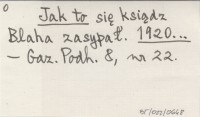 0
Jak to się ksiądz
Blaha zasypał. 1920...
— Gaz. Podh. 8, nr 22.